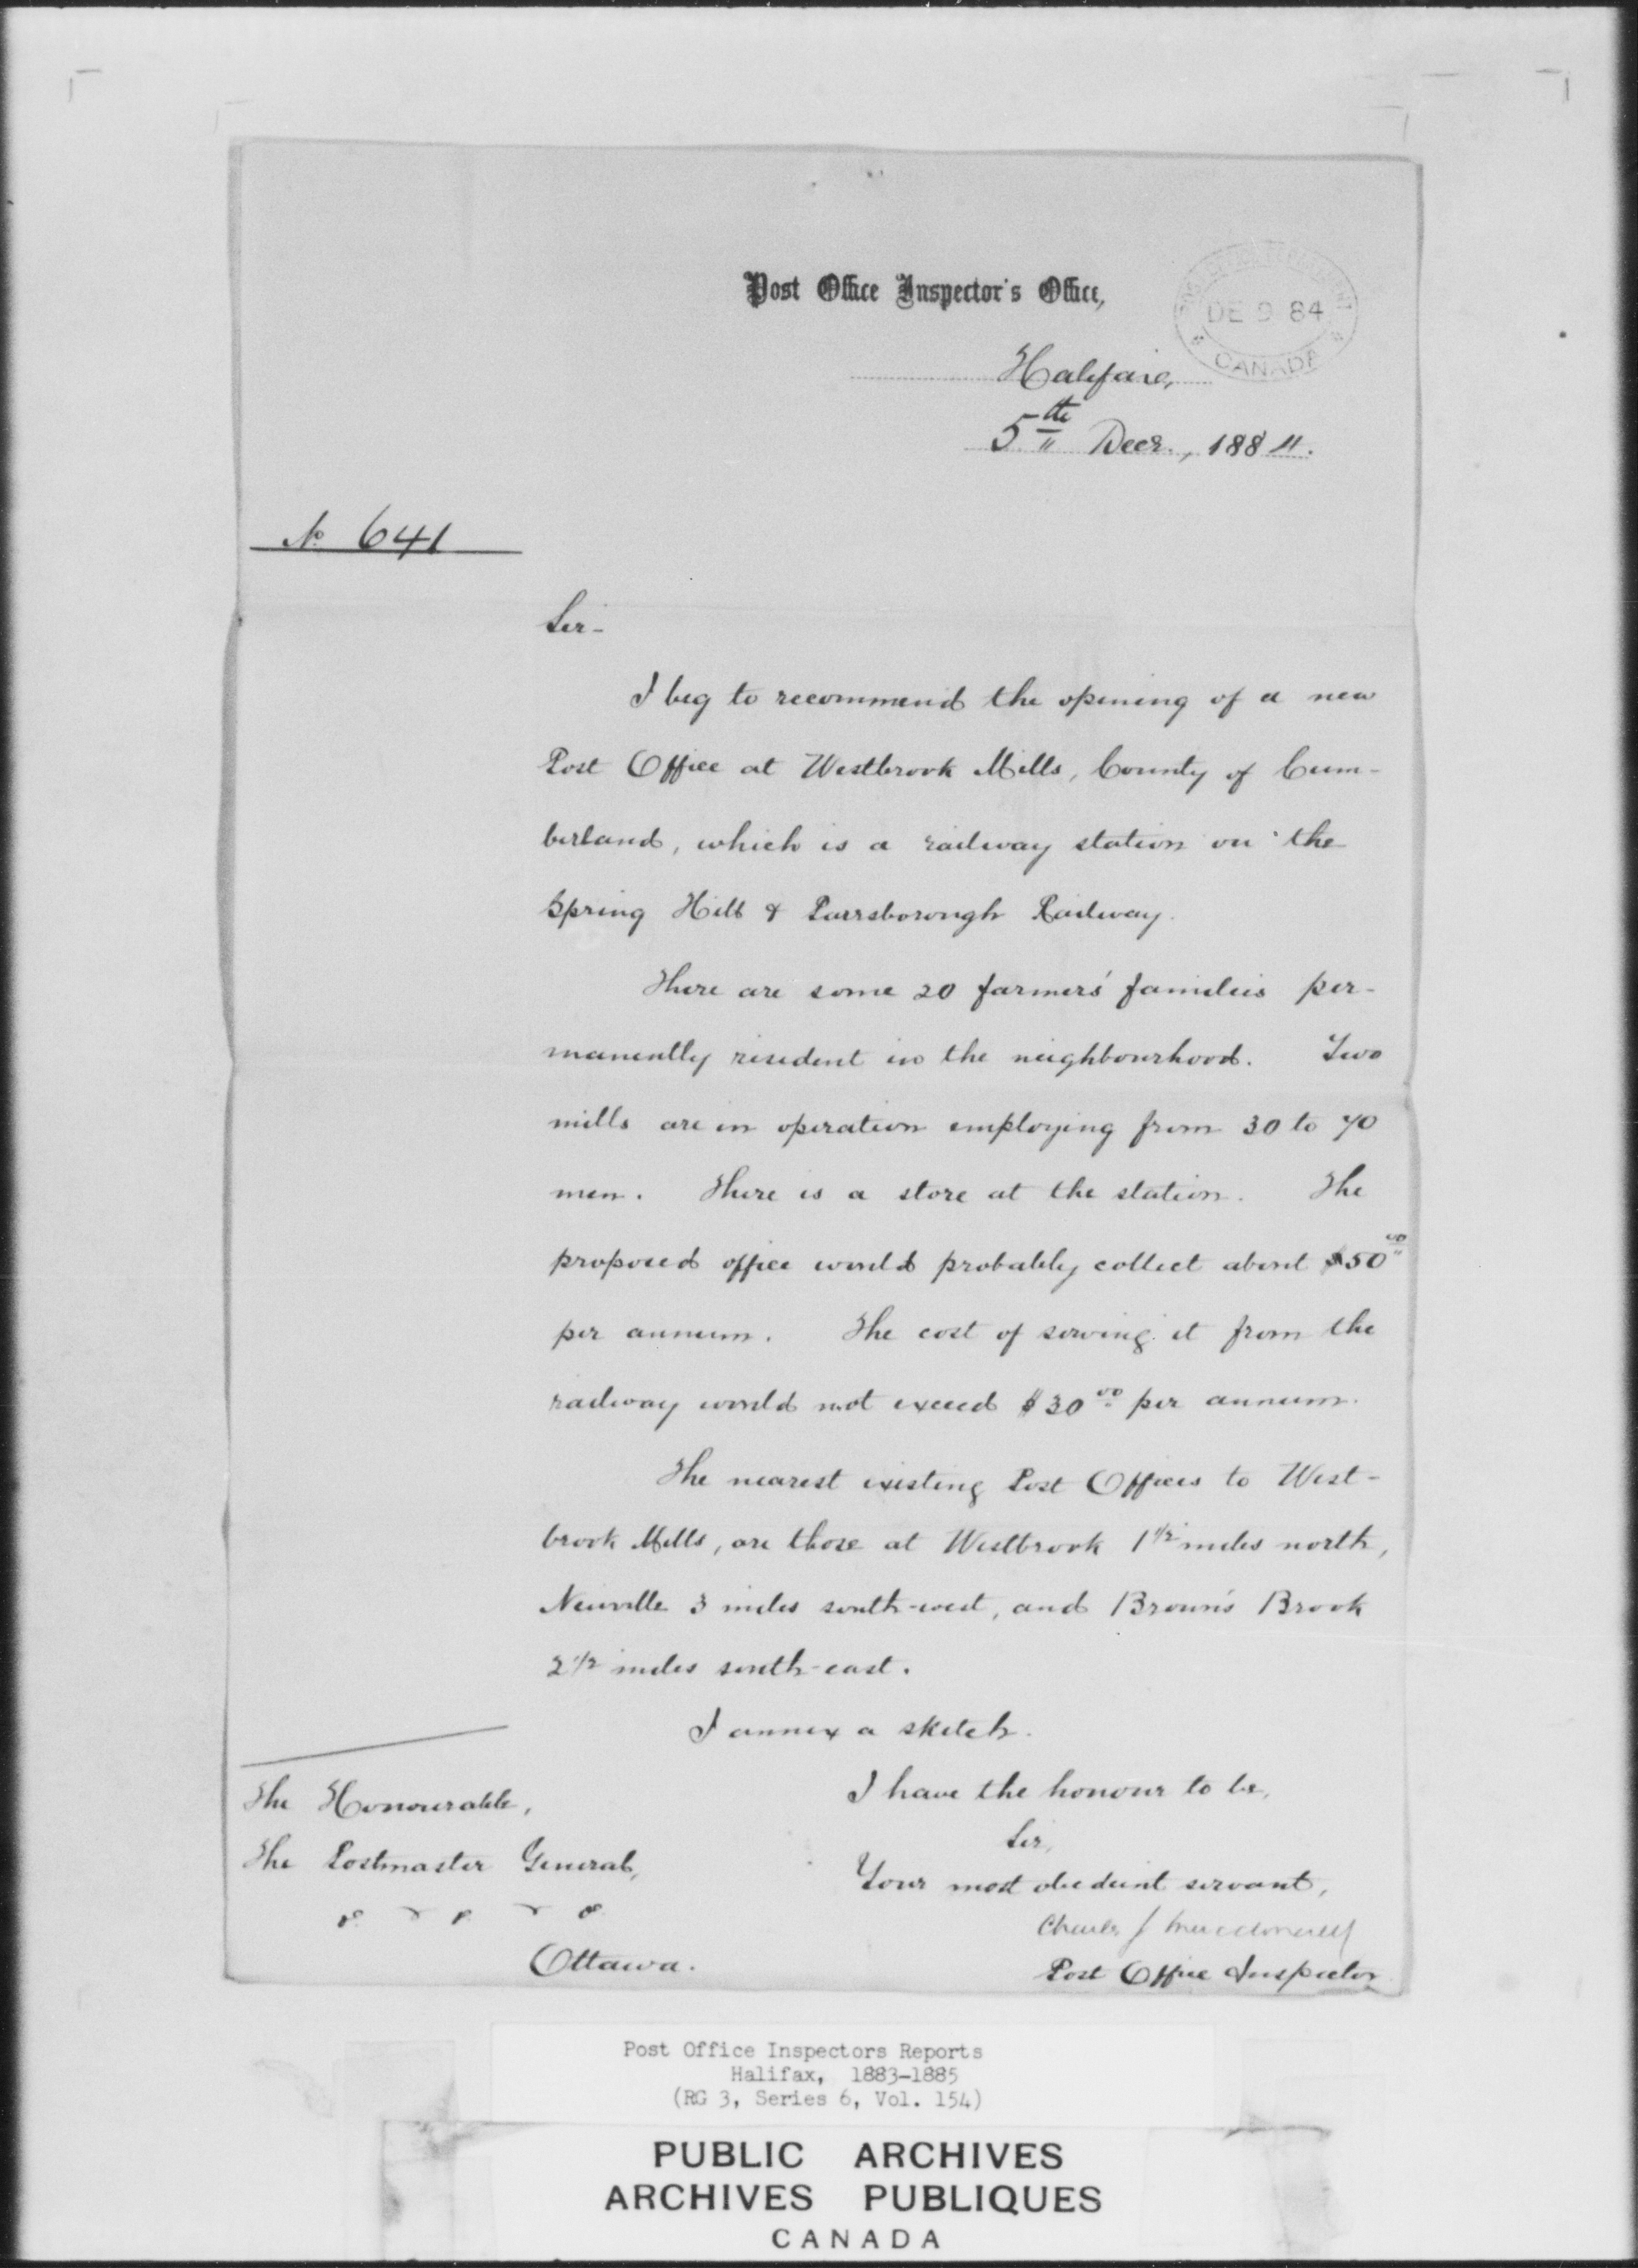 Post Office Inspector's Office,
DE 9 84
CANADA
Halifax,
5th Decr., 1884.
No 641
Sir-
I beg to recommend the opening of a new
Post Office at Westbrook Mills, County of Cum-
berland, which is a railway station on the
Spring Hill & Parrsborough Railway.
There are some 20 farmers' families per-
manently resident in the neighbourhood. Two
mills are in operation employing from 30 to 70
men. There is a store at the station. The
proposed office would probably collect about $50 00
per annum. The cost of serving it from the
railway would not exceed $30 00 per annum.
The nearest existing Post Offices to West-
brook Mills, are those at Westbrook 1 1/2 miles north,
Newville 3 miles south-west, and Brown's Brook
2 1/2 miles south-east.
I annex a sketch.
I have the honour to be,
Sir,
Your most obedient servant,
Charles J Macdonald
Post Office Inspector
The Honourable,
The Postmaster General,
Ottawa.
Post Office Inspectors Reports
Halifax, 1883-1885
(RG 3, Series 6, Vol. 154)
PUBLIC ARCHIVES
ARCHIVES PUBLIQUES
CANADA